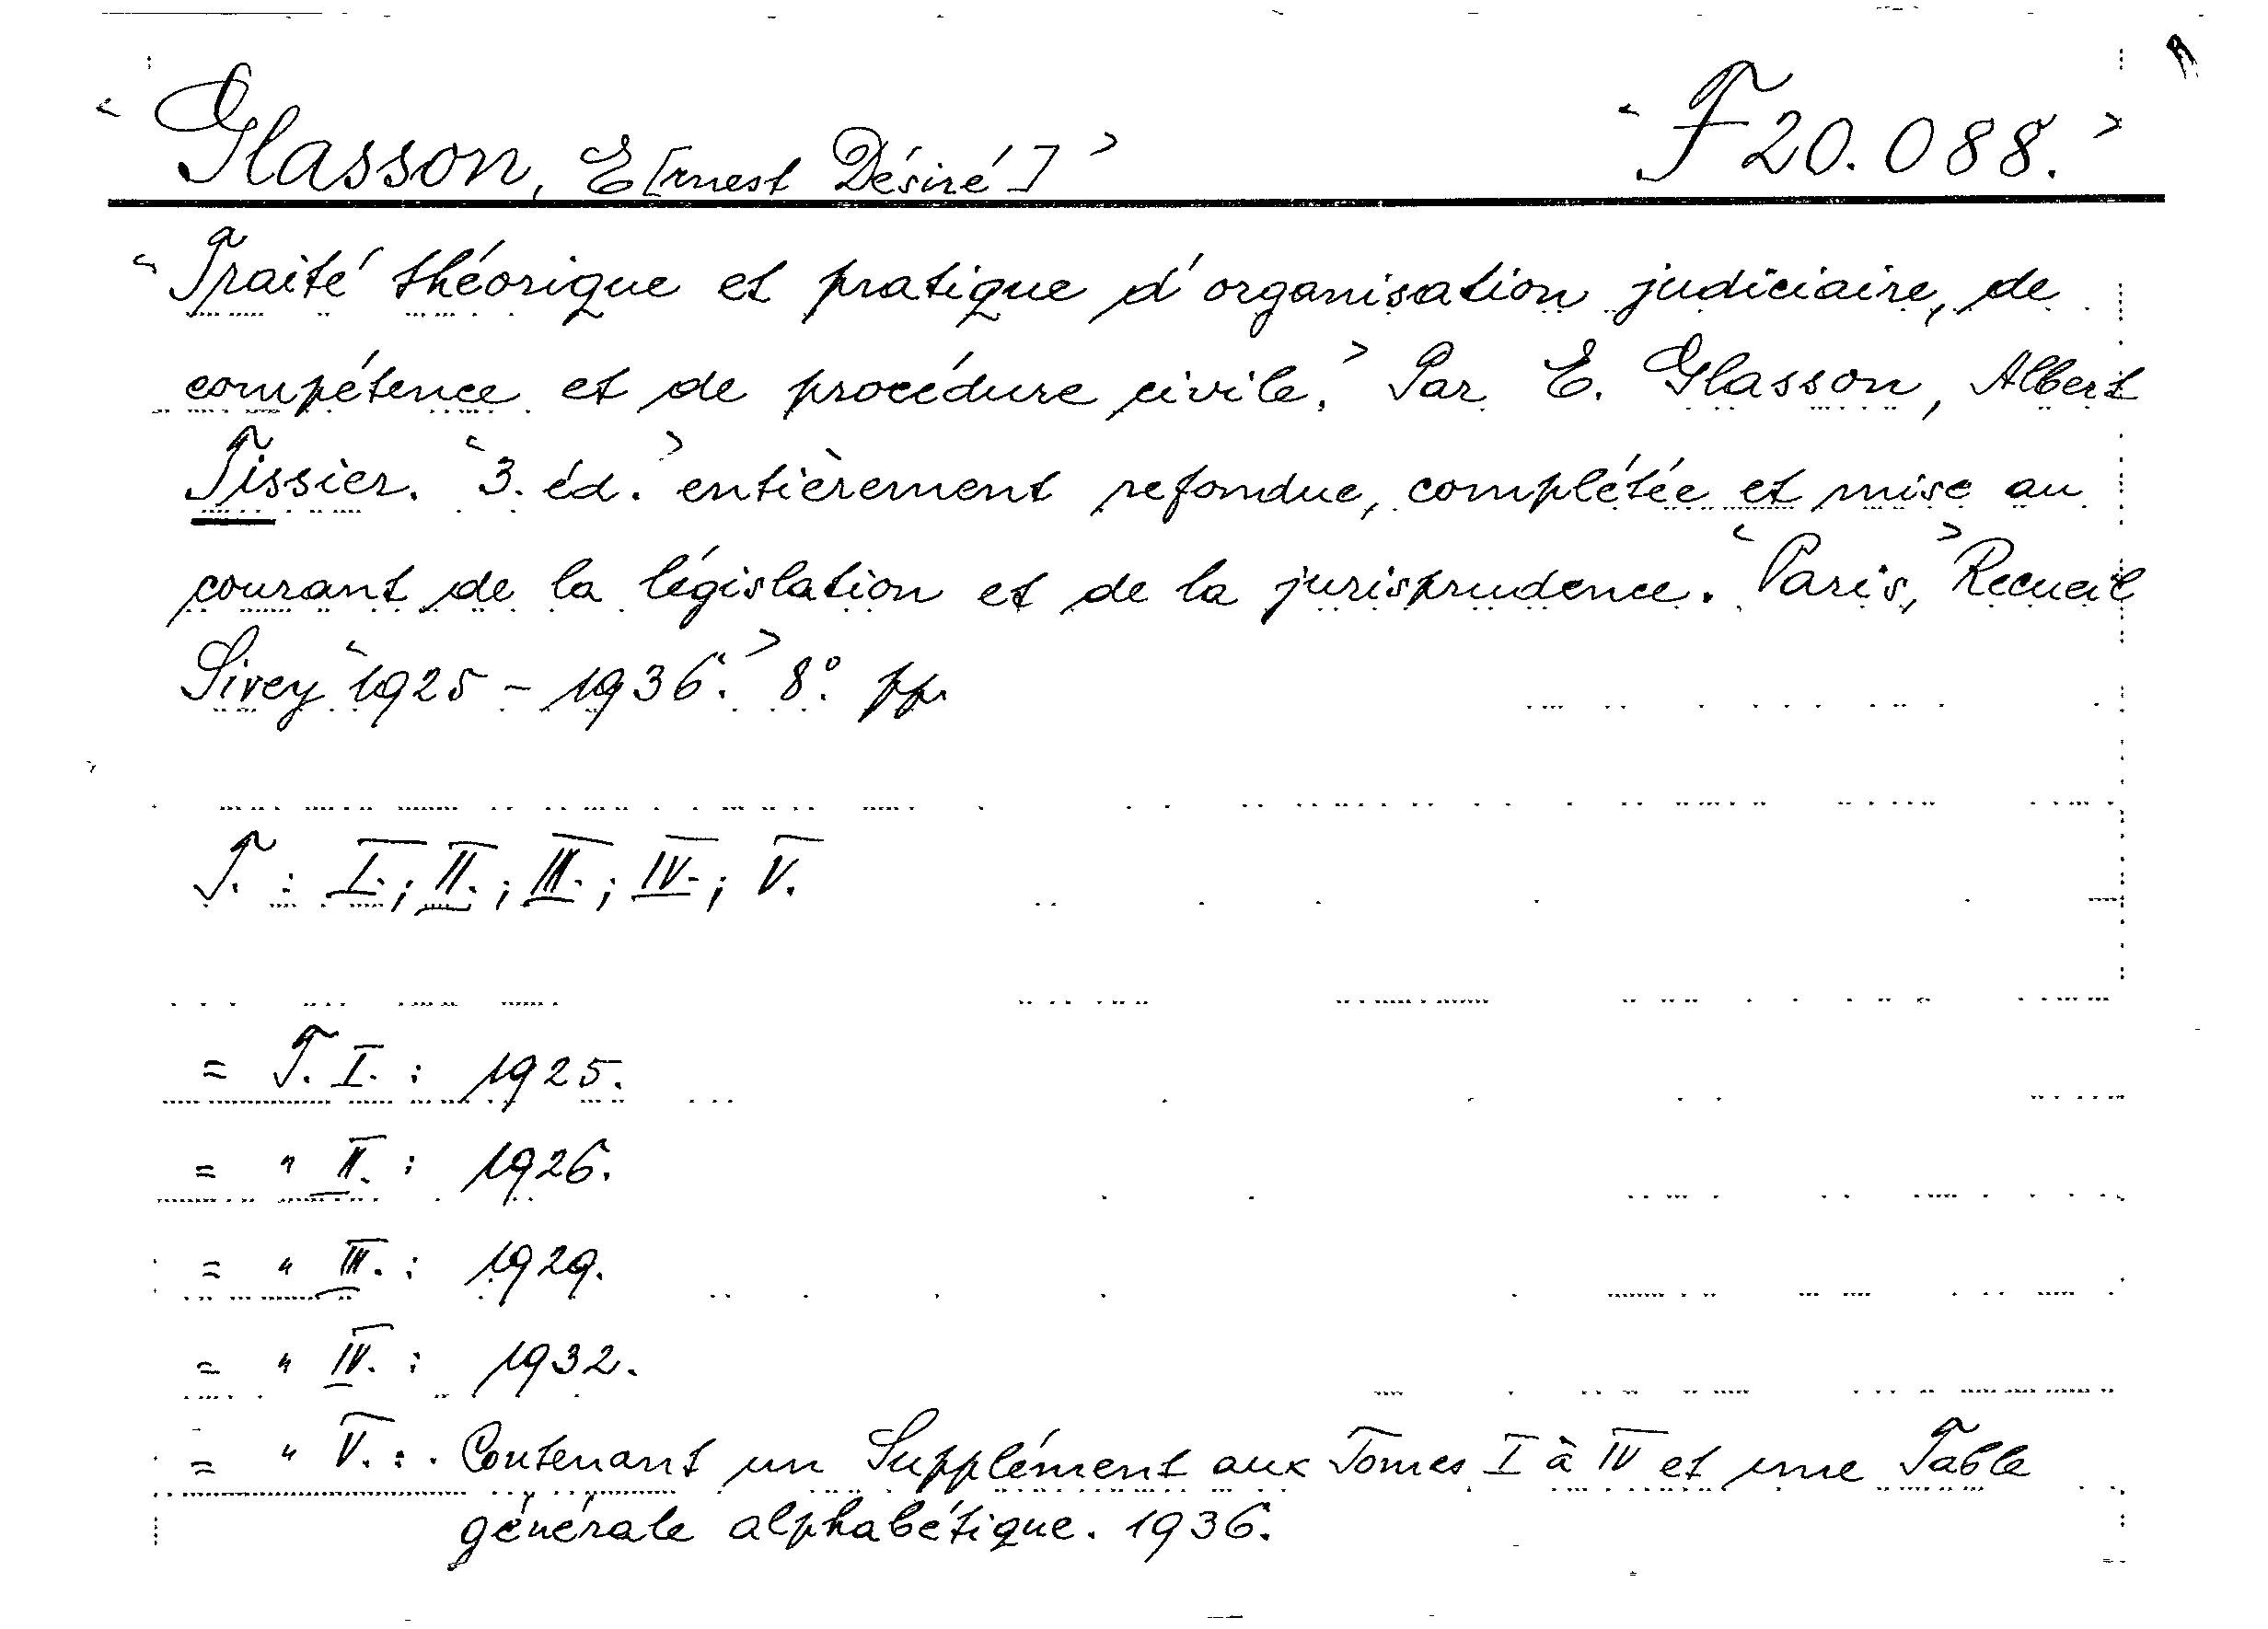 Glasson, E[rnest Désiré] F 20.088.
Traité théorique et pratique d'organisation judiciaire, de
compétence et de procédure civile. Par E. Glasson, Albert
Tissier. 3. éd. entièrement refondue, complétée et mise au
courant de la législation et de la jurisprudence. Paris, Recueil
Sirey 1925 - 1936. 8°. pp.
T. : I.; II.; III.; IV.; V.
= T. I. : 1925.
= " II. : 1926.
= " III. : 1929.
= " IV. : 1932.
= " V. : . Contenant un Supplément aux Tomes I à IV et une Table
générale alphabétique. 1936.